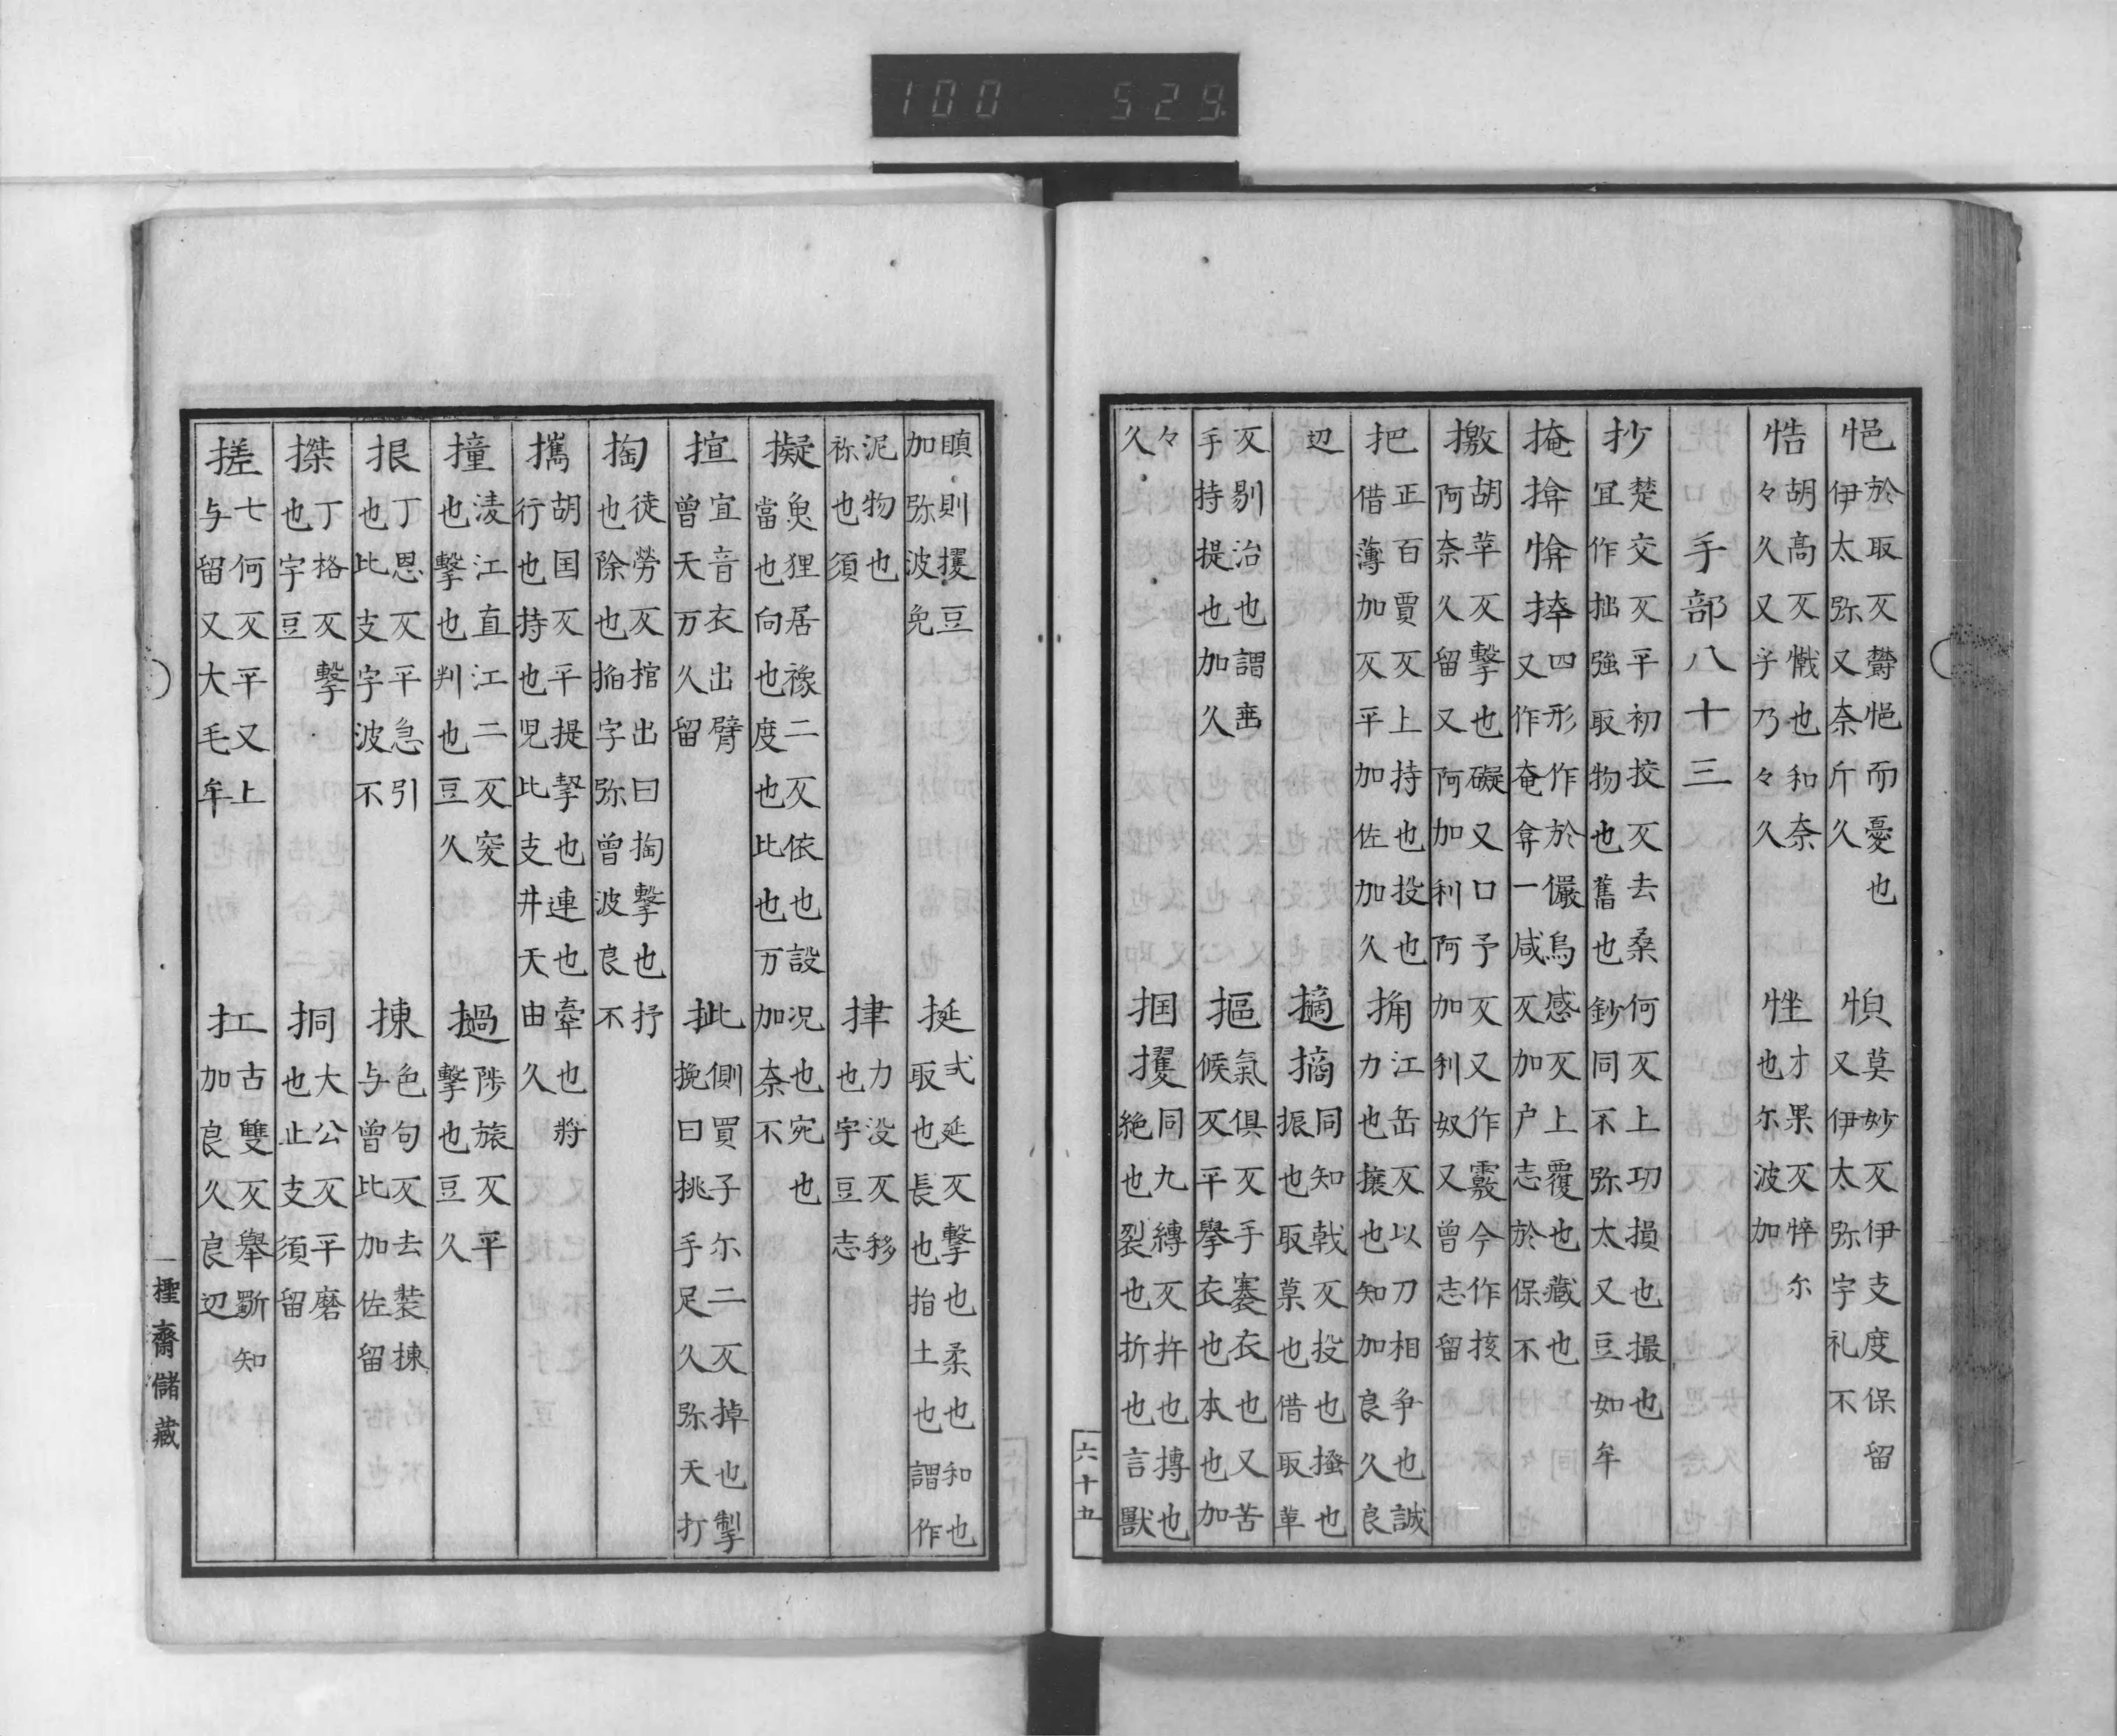 100 529.
悒 於取反欝悒而憂也 伊太弥又奈斤久 㥄 莫妙反伊支度保留 又伊太弥宇礼不
悎 胡髙反懺也和奈 々久又乎乃々久 㘸 才果反悴尓 也尓波加
手部八十三
抄 楚交反平初挍反去桑何反上功損也撮也 冝作拙強取物也舊也鈔同不弥太又豆如牟
掩揜㤷捧 四形作於儼烏感反上覆也藏也 又作奄弇一咸反加户志於保不
撽 胡苹反撃也礙又口予反又作覈今作核 阿奈久留又阿加利阿加利奴又曾志留
把 正百賈反上持也投也 借薄加反平加佐加久 捔 江岳反以刀相争也誠 力也攘也知加良久良
辺 擿摘 同知戟反投也搔也 振也取菓也借取草
反剔治也謂畫 手持提也加久 摳 氣俱反手褰衣也又苦 候反平擧衣也本也加
々久 掴攫 同九縛反扞也搏也 絶也裂也折也言獸
六十五
瞋則攫豆 加弥波免 挻 弍延反撃也柔也和也 取也長也抬土也謂作
泥物也 祢也須 𢯱 力没反移 也宇豆志
擬 魚狸居豫二反依也設况也宛也 當也向也度也比也万加奈不
揎 宜音衣出臂 曾天万久留 批 側買子尓二反掉也掣 挽曰挑手足久弥天打
掏 徒勞反棺出曰掏撃也抒 也除也掐字弥曾波良不
攜 胡国反平提挈也連也牽也将 行也持也児此支井天由久
撞 淩江直江二反突 也撃也判也豆久 撾 陟旅反平 撃也豆久
拫 丁恩反平急引 也比支字波不 揀 色句反去装揀 与曾比加佐留
搩 丁格反撃 也宇豆 挏 大公反平磨 也止支須留
搓 七何反平又上 与留又大毛牟 扛 古雙反舉斷知 加良久良辺
一㮚齋儲藏